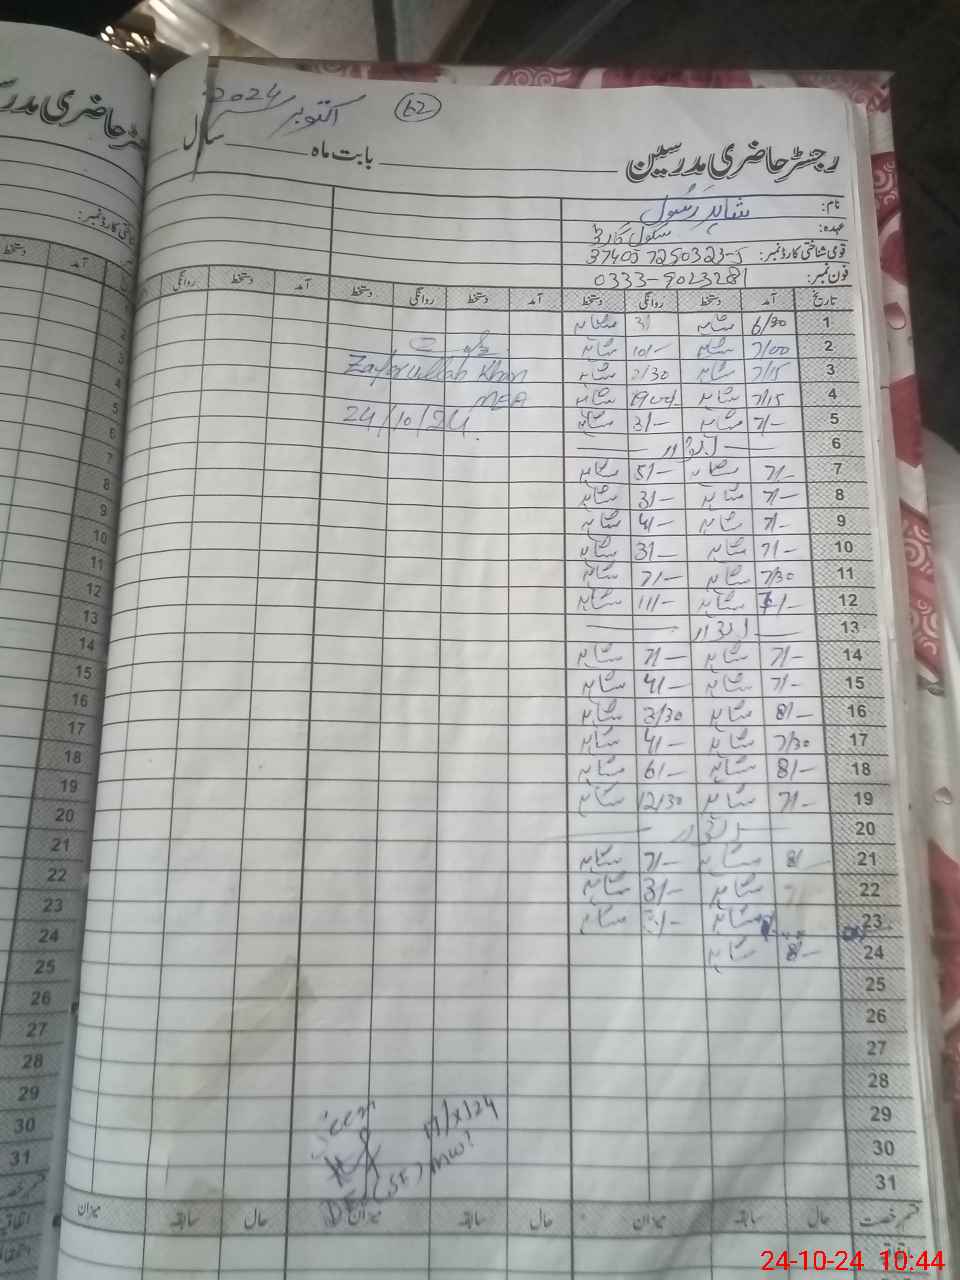 62
اکتوبر 2024
رجسٹر حاضری مدرسین بابت ماہ سال
نام: شاہد رسول
عہدہ: سکول گارڈ
قومی شناختی کارڈ نمبر: 37405 7250323-5
فون نمبر: 0333-9023281
تاریخ آمد دستخط روانگی دستخط آمد دستخط روانگی دستخط آمد دستخط روانگی
1 6/30 شاہد 3/ شاہد
2 7/00 شاہد 10/- شاہد
3 7/15 شاہد 2/30 شاہد
Zafarullah Khan
4 7/15 شاہد شاہد
MEA
5 7/- شاہد 3/- شاہد
24/10/24
6 اتوار
7 7/- شاہد 5/- شاہد
8 7/- شاہد 3/- شاہد
9 7/- شاہد 4/- شاہد
10 7/- شاہد 3/- شاہد
11 7/30 شاہد 7/- شاہد
12 7/- شاہد 11/- شاہد
13 اتوار
14 7/- شاہد 7/- شاہد
15 7/- شاہد 4/- شاہد
16 8/- شاہد 2/30 شاہد
17 7/30 شاہد 4/- شاہد
18 8/- شاہد 6/- شاہد
19 7/- شاہد 12/30 شاہد
20 اتوار
21 8/- شاہد 7/- شاہد
22 7/- شاہد 3/- شاہد
23 شاہد شاہد
24 8/- شاہد
25
26
27
28
29
30
31
Seen
17/X/24
قسم رخصت حال سابقہ میزان حال سابقہ میزان حال سابقہ میزان
اتفاقیہ
24-10-24 10:44